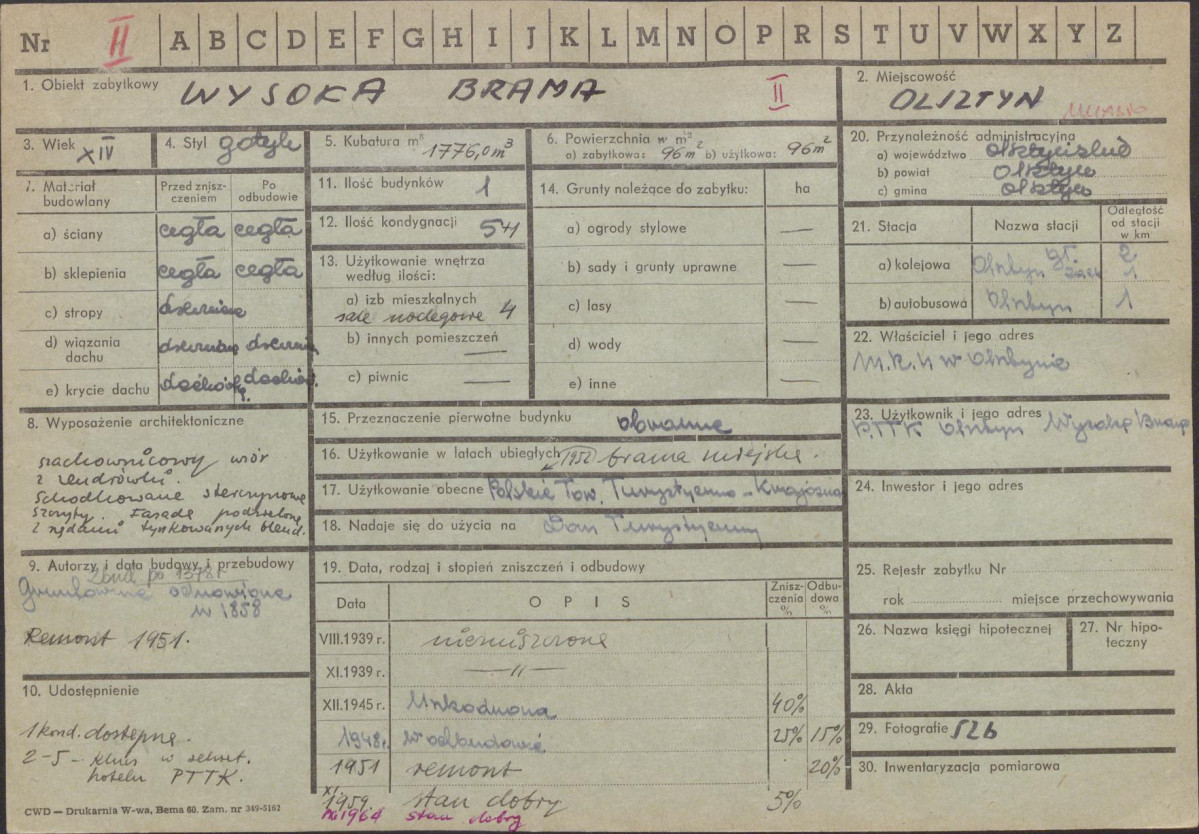 Nr II A B C D E F G H I J K L M N O P R S T U V W X Y Z
1. Obiekt zabytkowy WYSOKA BRAMA II
2. Miejscowość
OLSZTYN
3. Wiek XIV
4. Styl gotyk
5. Kubatura m³ 1776,0 m³
6. Powierzchnia w m²
a) zabytkowa: 96 m² b) użytkowa: 96 m²
7. Materiał budowlany
Przed zniszczeniem
Po odbudowie
a) ściany cegła cegła
b) sklepienia cegła cegła
c) stropy drewniane
d) wiązania dachu drewniane
e) krycie dachu
8. Wyposażenie architektoniczne
szachownicowy wzór
z zendrówki.
Schodkowane sterczynowe
szczyty. Fasada podzielona
tynkowanych blend.
9. Autorzy i data budowy i przebudowy
po 1378 r
Gruntownie odnowiona
w 1858
Remont 1951.
10. Udostępnienie
1 kond. dostępne.
2-5 - klucz w sekret.
hotelu PTTK.
11. Ilość budynków 1
12. Ilość kondygnacji
13. Użytkowanie wnętrza
według ilości:
a) izb mieszkalnych
sale noclegowe 4
b) innych pomieszczeń —
c) piwnic —
14. Grunty należące do zabytku: ha
a) ogrody stylowe —
b) sady i grunty uprawne —
c) lasy —
d) wody —
e) inne —
15. Przeznaczenie pierwotne budynku obronne
16. Użytkowanie w latach ubiegłych brama miejska.
17. Użytkowanie obecne Polskie Tow. Turystyczno-Krajozna
18. Nadaje się do użycia na Dom Turystyczny
19. Data, rodzaj i stopień zniszczeń i odbudowy
Data
O P I S
Zniszczenia %
Odbudowa %
VIII.1939 r. niezniszczone
XI.1939 r. — " —
XII.1945 r. Uszkodzona 40%
1948r. W odbudowie 25% 15%
1951 remont 20%
XI 1959. stan dobry 5%
1964 stan dobry
20. Przynależność administracyjna
a) województwo olsztyńskie
b) powiat Olsztyn
c) gmina Olsztyn
21. Stacja
Nazwa stacji
Odległość od stacji w km
a) kolejowa Olsztyn gł. 2
zach 1
b) autobusowa Olsztyn 1
22. Właściciel i jego adres
w Olsztynie
23. Użytkownik i jego adres
PTTK Olsztyn Wysoka Brama
24. Inwestor i jego adres
25. Rejestr zabytku Nr
rok miejsce przechowywania
26. Nazwa księgi hipotecznej
27. Nr hipoteczny
28. Akta
29. Fotografie 526
30. Inwentaryzacja pomiarowa
CWD — Drukarnia W-wa, Bema 60. Zam. nr 349-5162